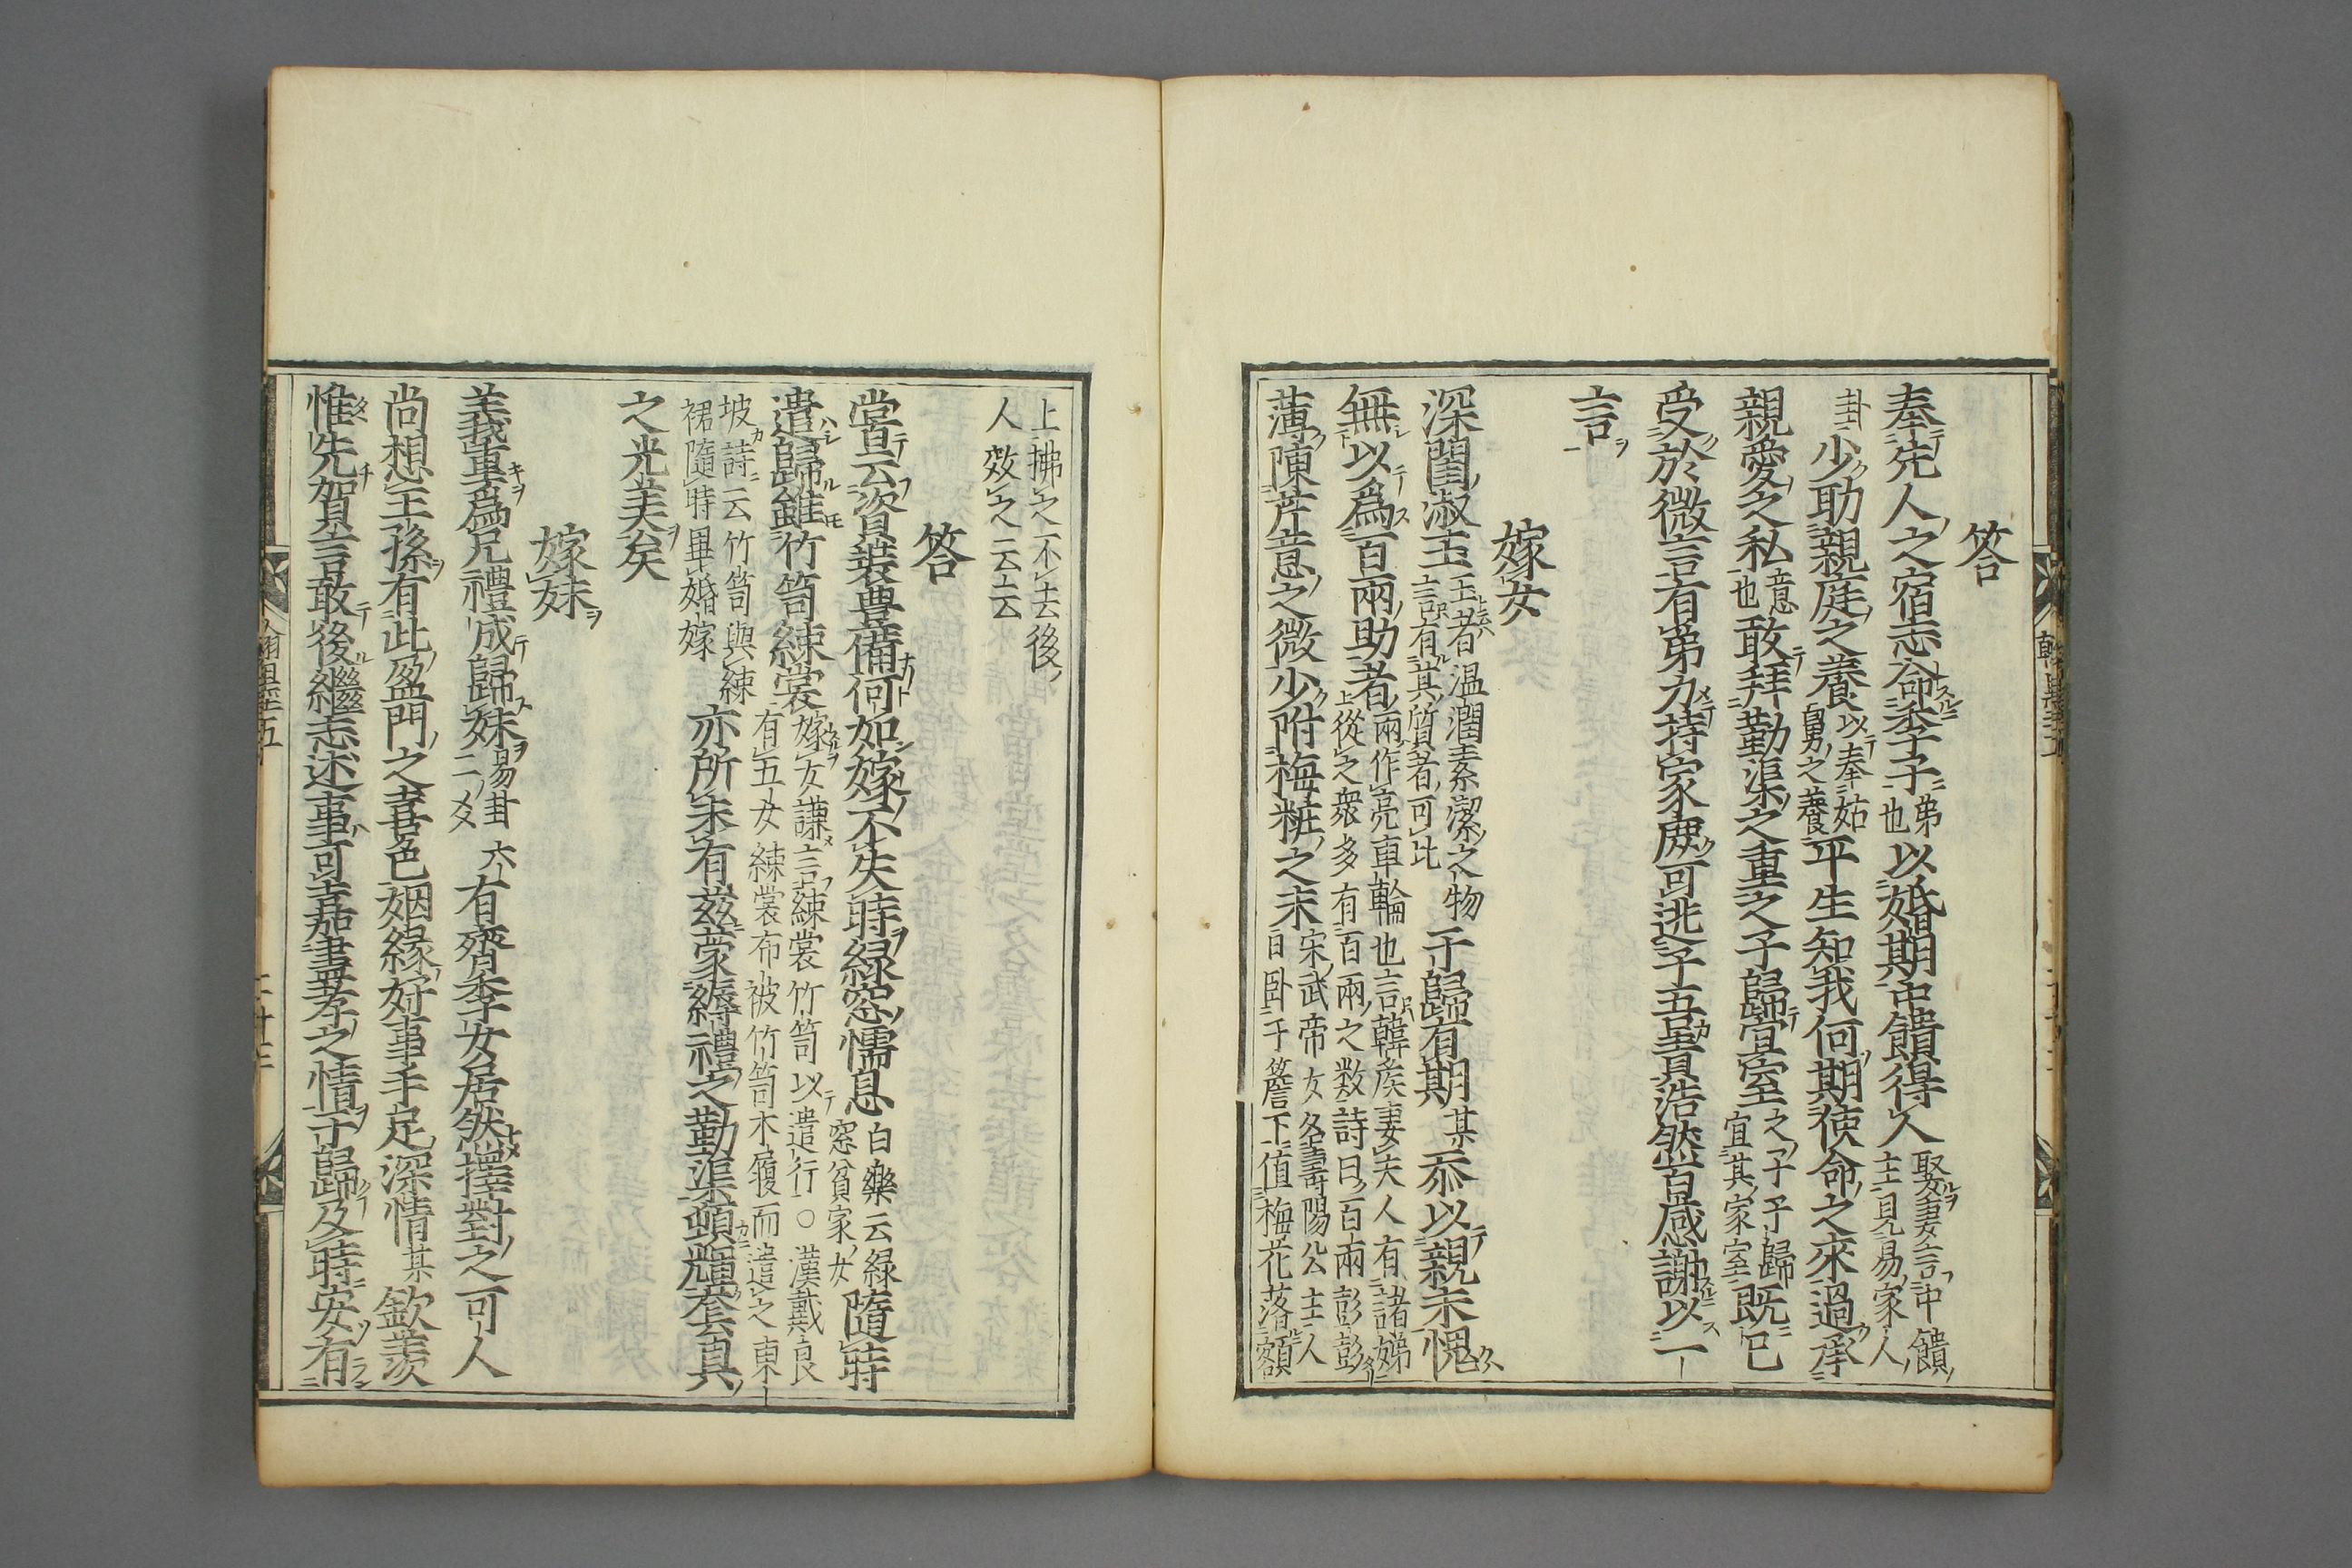 答
奉先人之宿志命季子弟也以婚期中饋得人娶妻言中饋主見易家人
卦少助親庭之養以奉姑舅之養平生知我何期使命之來過承
親愛之私意也敢拜勤渠之重之子歸宜室之子予歸宜其家室既已
受於微言有弟力持家庶可逃乎吾責浩然百感謝以一
言
嫁女
深閨淑玉玉者温潤素潔之物言有其質者可比于歸有期某忝以親末愧
無以爲百兩助者兩作亮車輪也言韓侯妻夫人有諸娣從之衆多有百兩之数詩曰百兩彭彭
薄陳芹意之微少附梅粧之末宋武帝女名壽陽公主人日卧于簷下値梅花落額
上拂之不去後人效之云云
答
嘗云資装豊備何如嫁不失時緑窓懦息白樂云緑窓貧家女隨時
遣歸雖竹笥練裳嫁女謙言練裳竹笥以遣行○漢戴良有五女練裳布被竹笥木履而遣之東
坡詩云竹笥與練裙隨時畢婚嫁亦所未有兹蒙縟禮之勤渠頓輝奩具
之光美矣
嫁妹
義我重爲兄禮成歸妹易卦六二爻有齊季女居然擇對之可人
尚想王孫有此盈門之喜色姻緣好事手足深情某歆羡
惟先賀言敢後繼志述事可嘉盡孝之情于歸及時安有
翰墨五